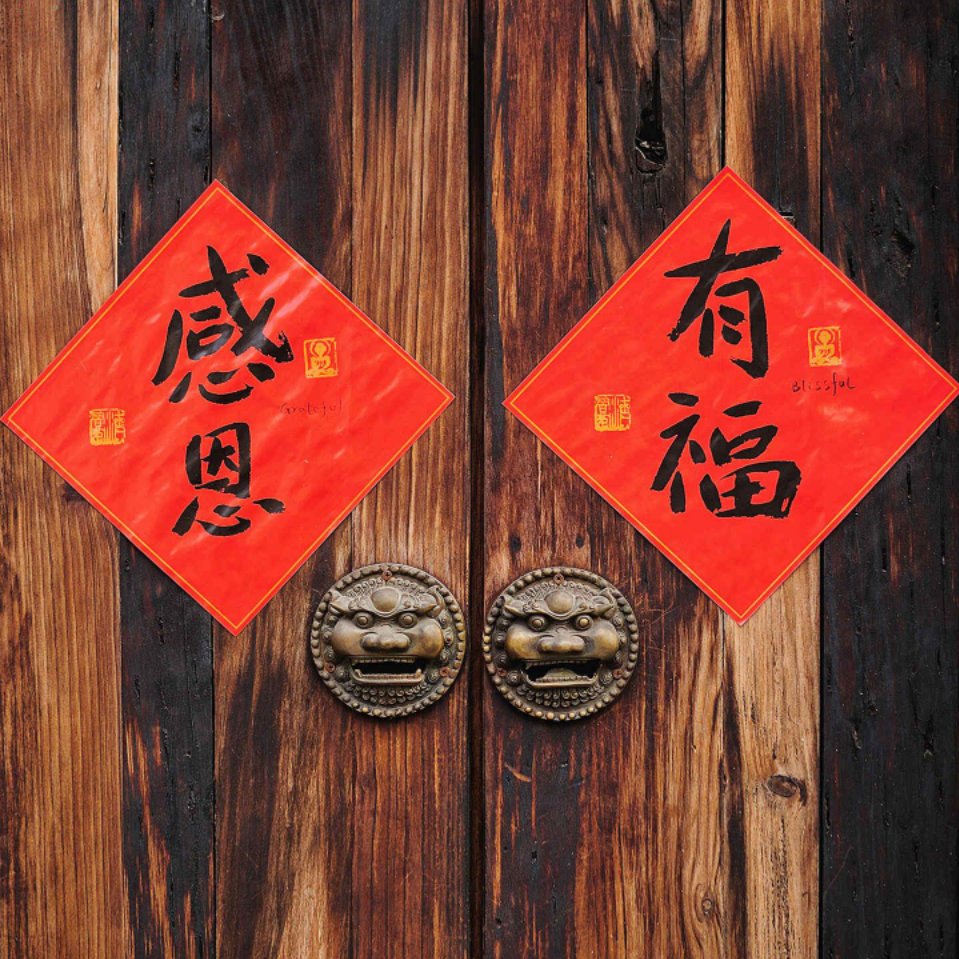 感恩
Grateful
有福
Blissful